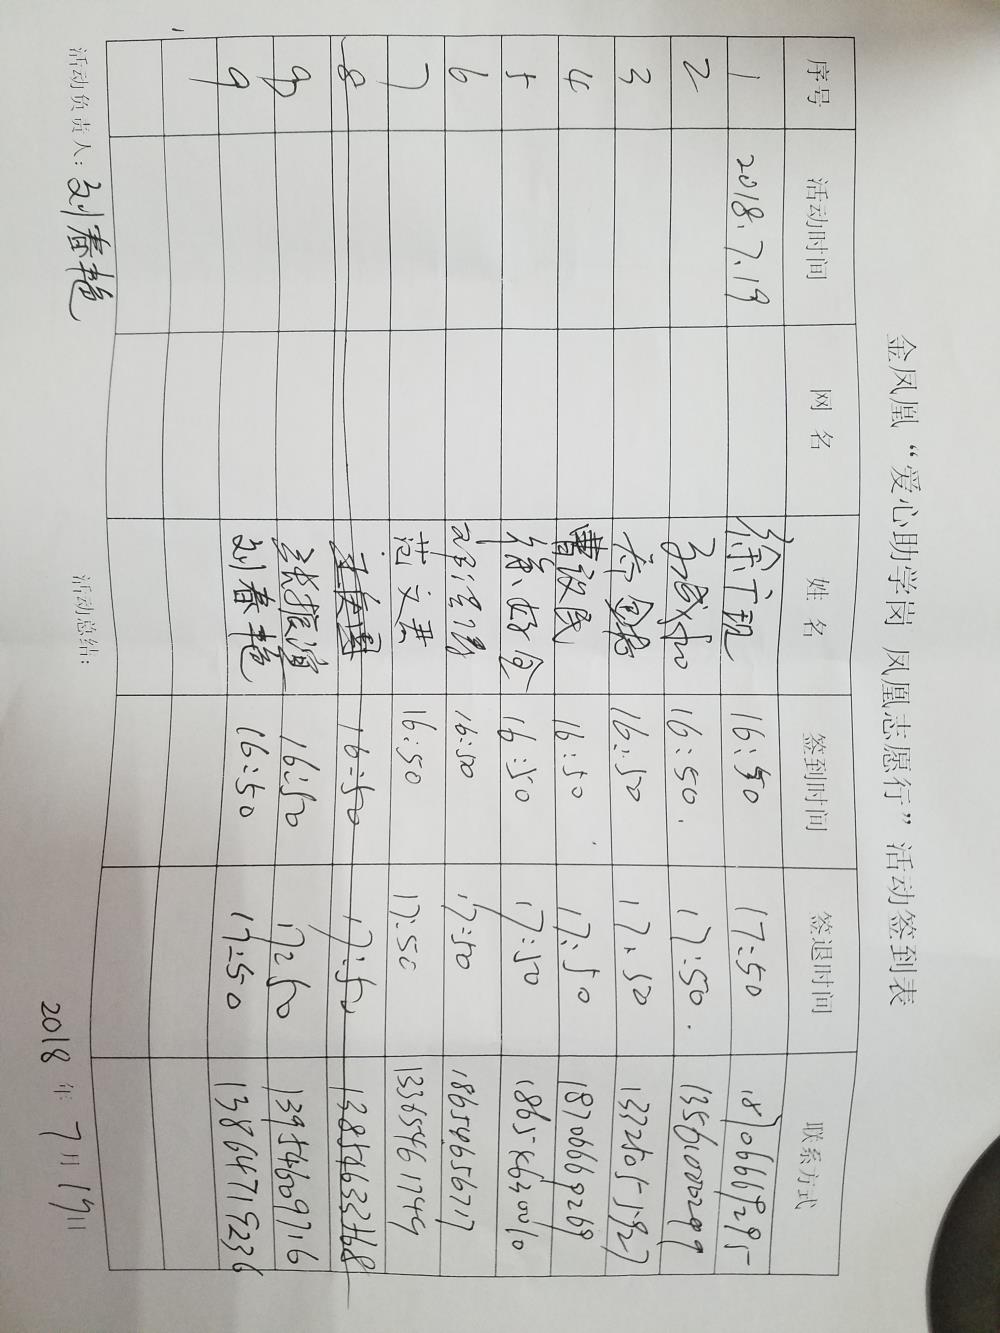 金凤凰“爱心助学岗 凤凰志愿行”活动签到表
序号 活动时间 网 名 姓 名 签到时间 签退时间 联系方式
1 2018.7.19 16:50 17:50 18706669295
2 16:50. 17:50. 13561000299
3 16:50 17:50
4 曹汉民 16:50 17:50 18706669269
5 16:50 17:50
6 16:50 17:50 18654656717
7 范文英 16:50 17:50 13365461749
8 16:50 17:50 13854633768
8 张振滨 16:50 17:50 13954609716
9 刘春艳 16:50 17:50 13864715236
活动负责人：刘春艳 活动总结：
2018 年 7 月 19 日